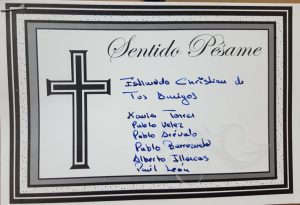 Sentido Pésame
Christian de
Tus Amigos
Xavier Torres
Pablo Velez
Pablo Arévalo
Pablo
Alberto Illescas
Paúl León